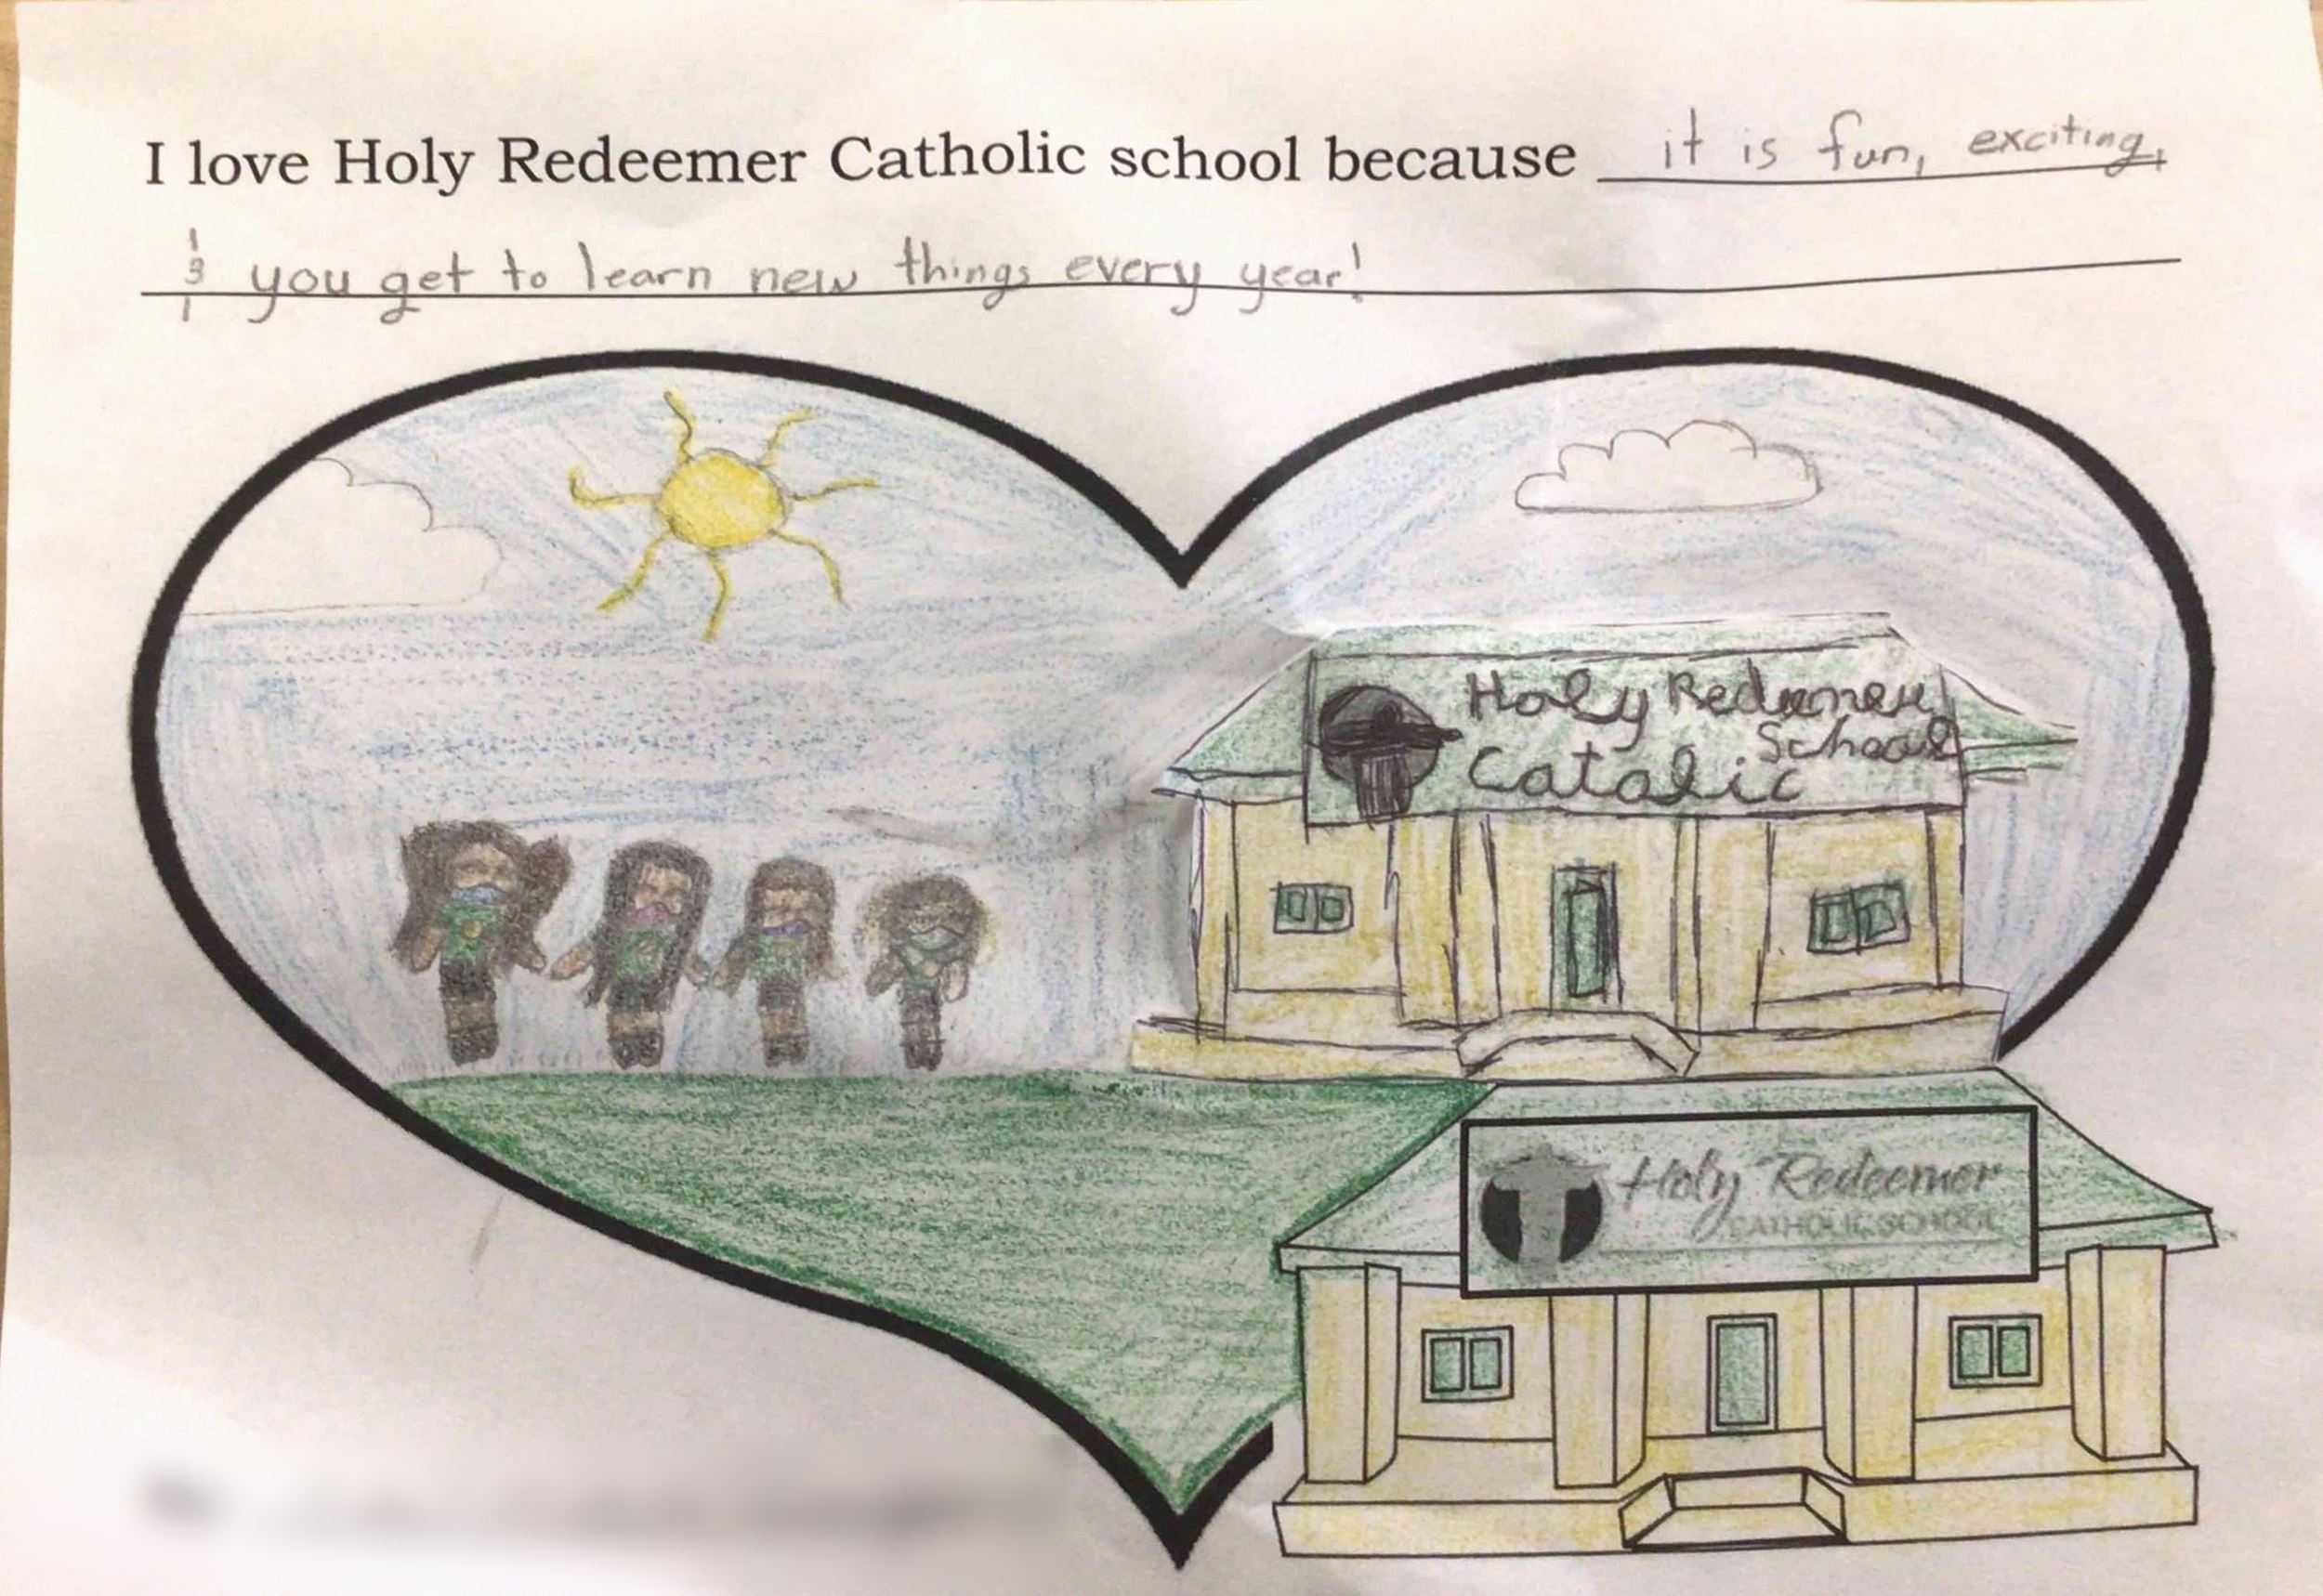 I love Holy Redeemer Catholic school because it is fun, exciting,
& you get to learn new things every year!
Holy Redeemer
School
Catolic
Holy Redeemer
CATHOLIC SCHOOL